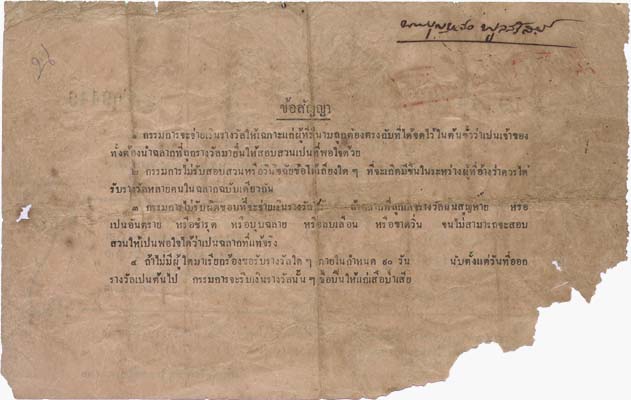 ข้อสัญญา
๑ กรรมการจะจ่ายเงินรางวัลให้เฉภาะแต่ผู้ที่มีนามถูกต้องตรงกับที่ได้จดไว้ในต้นขั้วว่าเปนเจ้าของ
ทั้งต้องนำฉลากที่ถูกรางวัลมายื่นให้สอบสวนเปนที่พอใจด้วย
๒ กรรมการไม่รับสอบสวนหรือวินิจฉัยข้อโต้เถียงใด ๆ ที่จะเกิดมีขึ้นในระหว่างผู้ที่อ้างว่าควรได้
รับรางวัลหลายคนในฉลากฉบับเดียวกัน
๓ กรรมการไม่รับผิดชอบที่จะจ่ายเงินรางวัล ถ้าฉลากที่ถูกรางวัลนั้นสูญหาย หรือ
เปนอันตราย หรือชำรุด หรือบุบฉลาย หรือลบเลือน หรือขาดวิ่น จนไม่สามารถจะสอบ
สวนให้เปนพอใจได้ว่าเปนฉลากที่แท้จริง
๔ ถ้าไม่มีผู้ใดมาเรียกร้องขอรับรางวัลใด ๆ ภายในกำหนด ๙๐ วัน นับตั้งแต่วันที่ออก
รางวัลเปนต้นไป กรรมการจะริบเงินรางวัลนั้น ๆ ให้แก่เสือป่าเสีย